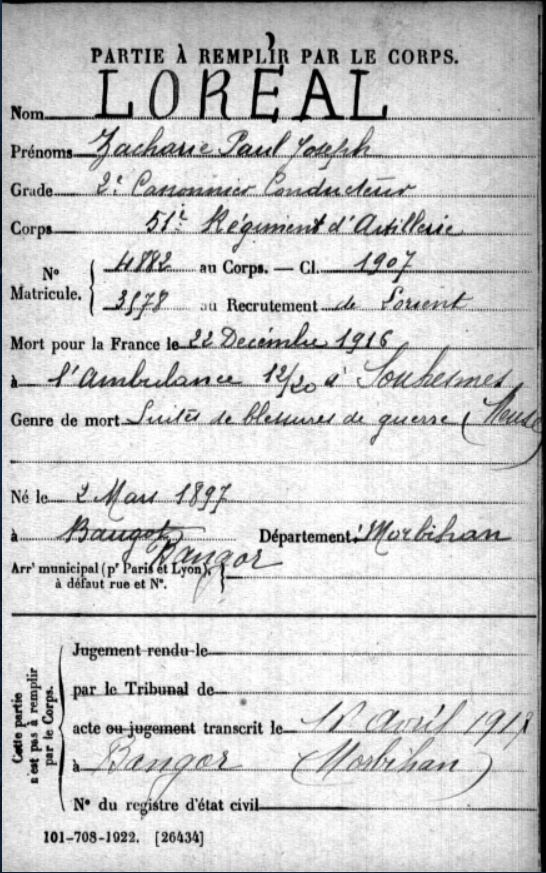 PARTIE À REMPLIR PAR LE CORPS.
Nom LOREAL
Prénoms Zacharie Paul Joseph
Grade 2e Canonnier Conducteur
Corps 51e Régiment d'Artillerie
N° Matricule. { 4882 au Corps. — Cl. 1907
3578 au Recrutement de Lorient
Mort pour la France le 22 Decembre 1916
à l'Ambulance 12/20 à Souhesmes
Genre de mort Suites de blessures de guerre (Meuse)
Né le 2 Mars 1897
à Baugot Département Morbihan
Bangor
Arrt municipal (pr Paris et Lyon), à défaut rue et N°. {
Cette partie n'est pas à remplir par le Corps.
Jugement rendu le
par le Tribunal de
acte ou jugement transcrit le Avril 1917
à Bangor (Morbihan)
N° du registre d'état civil
101-708-1922. [26434]